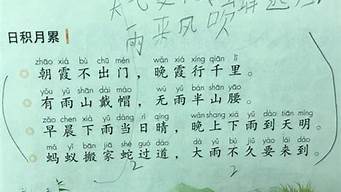 雨来风吹
日积月累
zhāo xiá bù chū mén wǎn xiá xíng qiān lǐ
朝霞不出门，晚霞行千里。
yǒu yǔ shān dài mào wú yǔ bàn shān yāo
有雨山戴帽，无雨半山腰。
zǎo chen xià yǔ dāng rì qíng wǎn shang xià yǔ dào tiān míng
早晨下雨当日晴，晚上下雨到天明。
mǎ yǐ bān jiā shé guò dào dà yǔ bù jiǔ yào lái dào
蚂蚁搬家蛇过道，大雨不久要来到。
2
2